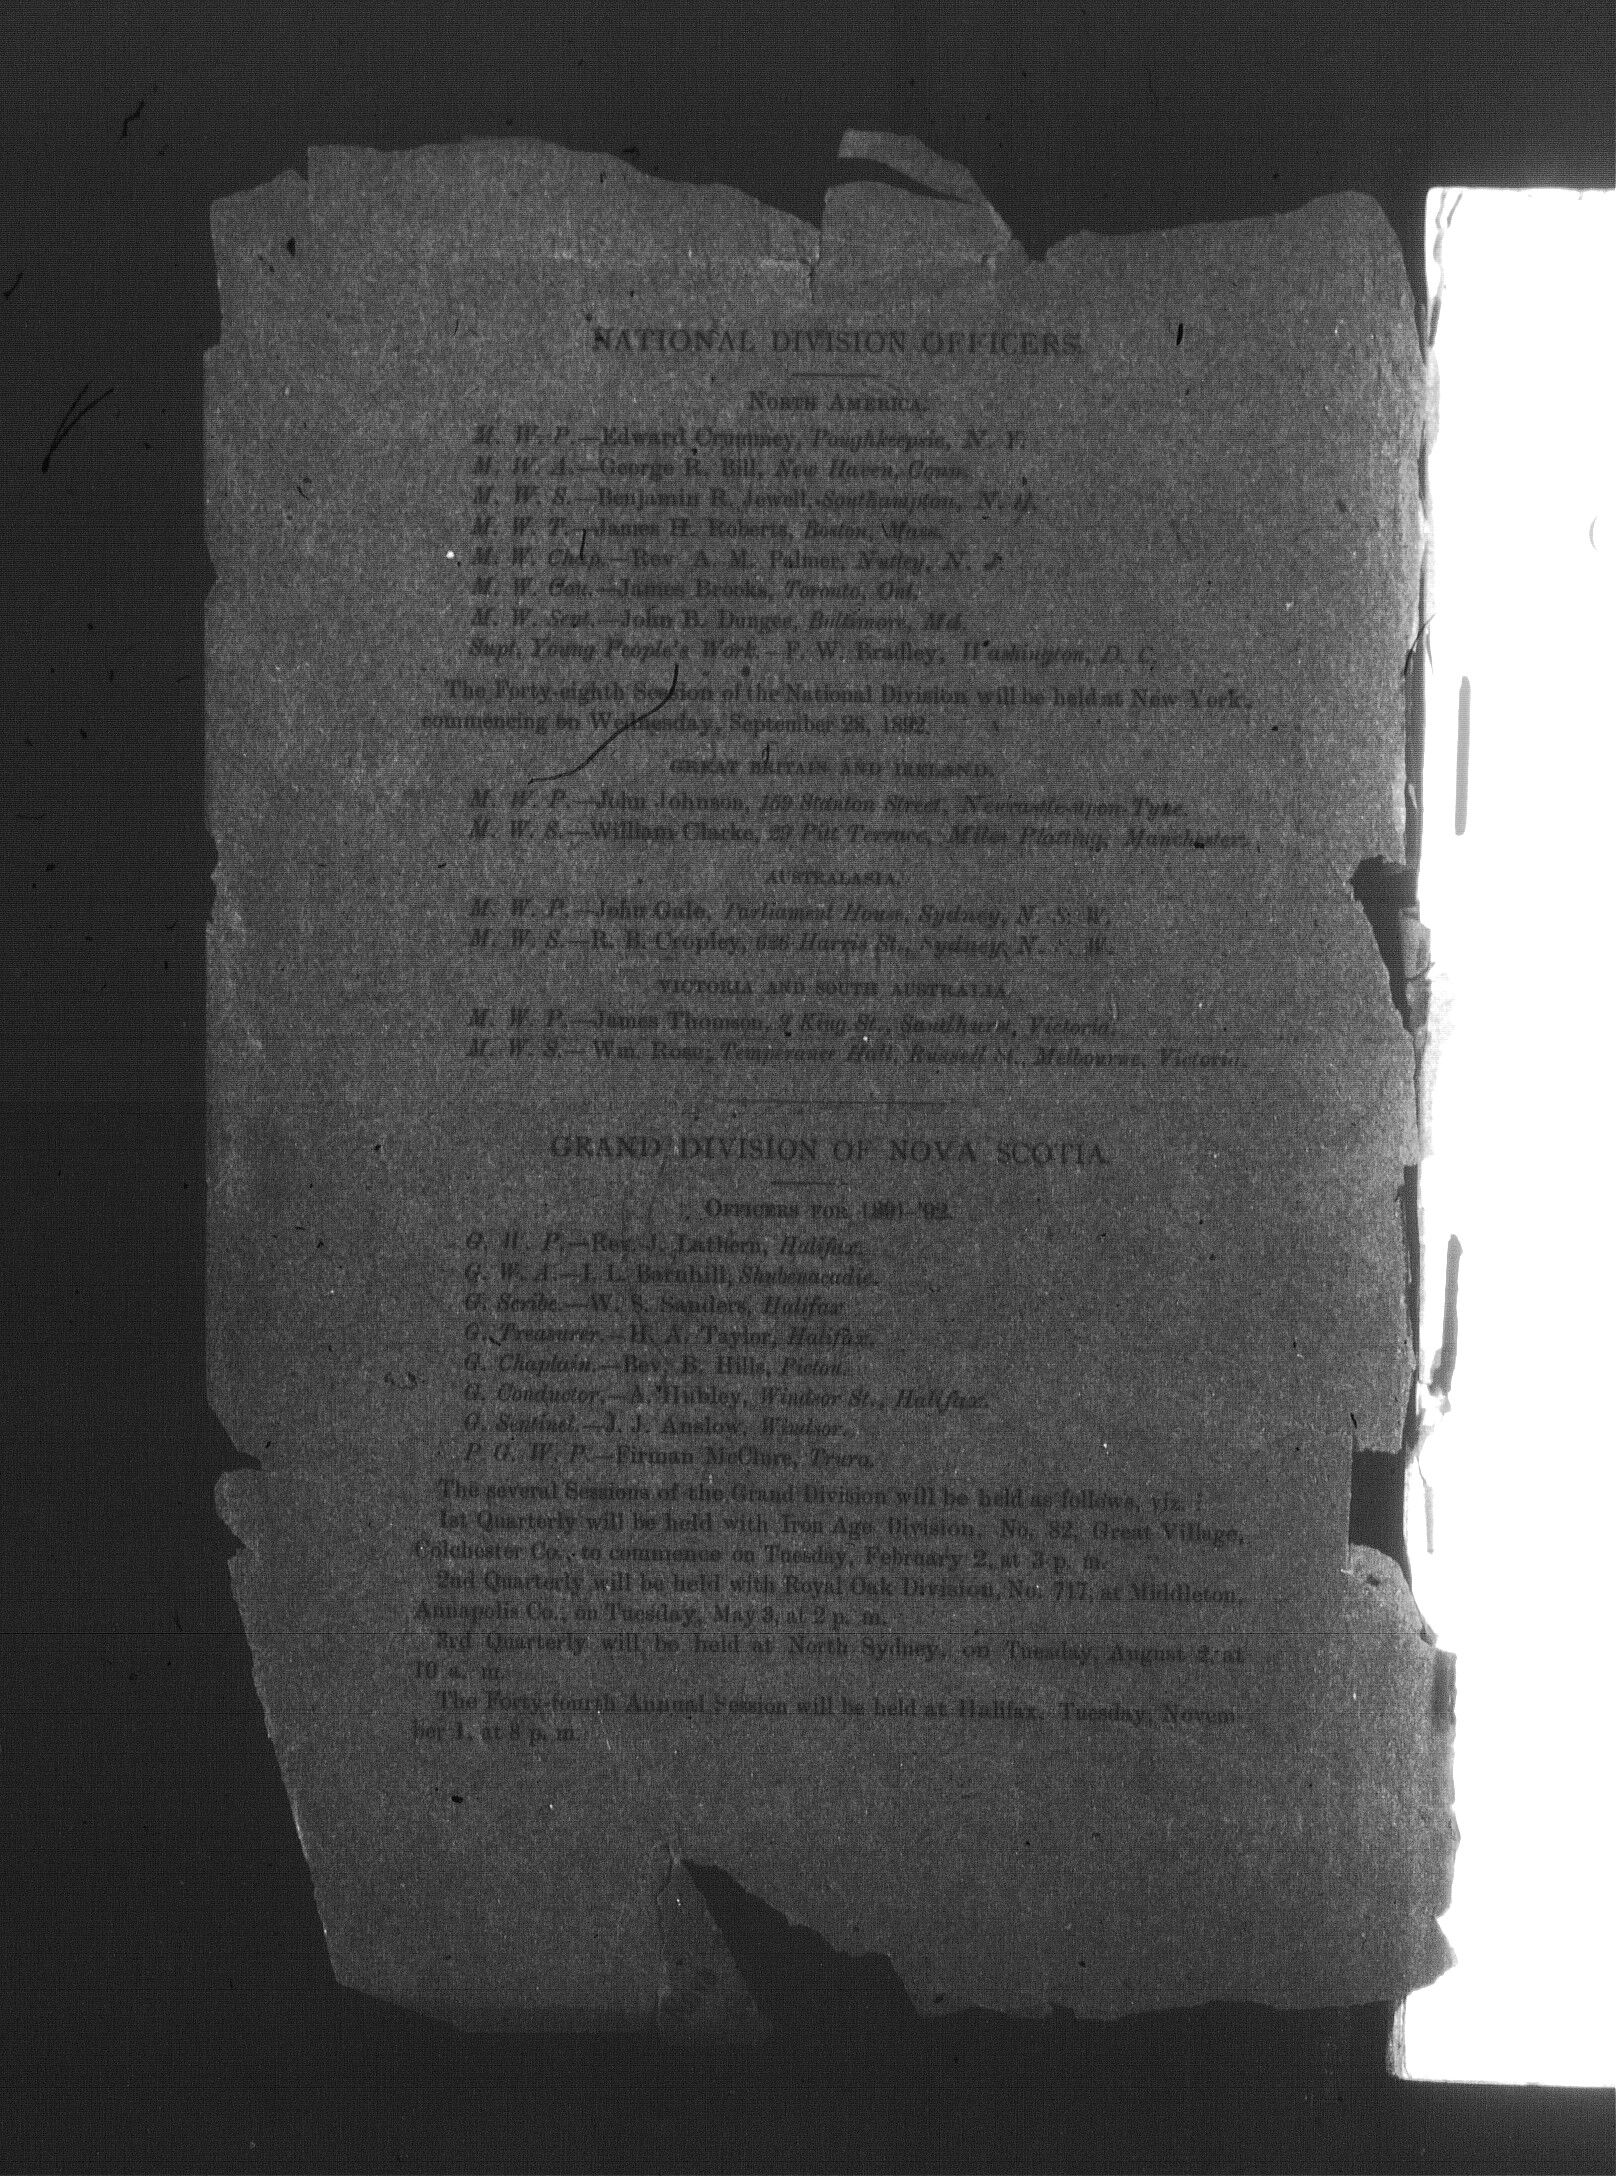 NATIONAL DIVISION OFFICERS.
NORTH AMERICA.
M. W. P.—Edward Crummey, Poughkeepsie, N. Y.
M. W. A.—George R. Bill, New Haven, Conn.
M. W. S.—Benjamin R. Jewell, Southampton, N. H.
M. W. T.—James H. Roberts, Boston, Mass.
M. W. Chap.—Rev. A. M. Palmer, Nutley, N. J.
M. W. Con.—James Brooks, Toronto, Ont.
M. W. Sent.—John B. Dungee, Baltimore, Md.
Supt. Young People's Work.—F. W. Bradley, Washington, D. C.
The Forty-eighth Session of the National Division will be held at New York,
commencing on Wednesday, September 28, 1892.
GREAT BRITAIN AND IRELAND.
M. W. P.—John Johnson, 159 Stanton Street, Newcastle-upon-Tyne.
M. W. S.—William Clarke, 29 Pitt Terrace, Miles Platting, Manchester.
AUSTRALASIA.
M. W. P.—John Gale, Parliament House, Sydney, N. S. W.
M. W. S.—R. B. Cropley, 626 Harris St., Sydney, N. S. W.
VICTORIA AND SOUTH AUSTRALIA
M. W. P.—James Thomson, 9 King St., Sandhurst, Victoria.
M. W. S.—Wm. Rose, Temperance Hall, Russell St., Melbourne, Victoria.
GRAND DIVISION OF NOVA SCOTIA.
OFFICERS FOR 1891-'92.
G. W. P.—Rev. J. Lathern, Halifax.
G. W. A.—I. L. Barnhill, Shubenacadie.
G. Scribe.—W. S. Sanders, Halifax
G. Treasurer.—H. A. Taylor, Halifax.
G. Chaplain.—Rev. B. Hills, Pictou.
G. Conductor.—A. Hubley, Windsor St., Halifax.
G. Sentinel.—J. J. Anslow, Windsor.
P. G. W. P.—Firman McClure, Truro.
The several Sessions of the Grand Division will be held as follows, viz. :
1st Quarterly will be held with Iron Age Division, No. 82, Great Village,
Colchester Co., to commence on Tuesday, February 2, at 3 p. m.
2nd Quarterly will be held with Royal Oak Division, No. 717, at Middleton,
Annapolis Co., on Tuesday, May 3, at 2 p. m.
3rd Quarterly will be held at North Sydney, on Tuesday, August 2, at
10 a. m.
The Forty-fourth Annual Session will be held at Halifax, Tuesday, Novem
ber 1, at 8 p. m.